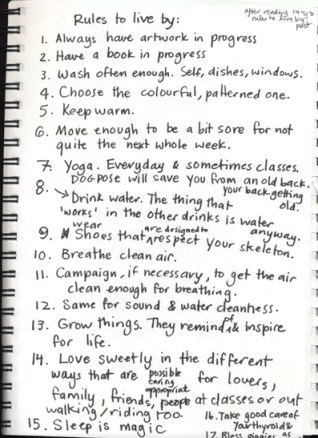 after reading
rules to live by
post
Rules to live by:
1. Always have artwork in progress
2. Have a book in progress
3. Wash often enough. Self, dishes, windows.
4. Choose the colourful, patterned one.
5. Keep warm.
6. Move enough to be a bit sore for not
quite the next whole week.
7. Yoga. Everyday & sometimes classes.
DOGPOSE will save you from an old back.
your back getting
old.
8. → Drink water. The thing that
'works' in the other drinks is water
anyway.
9. Wear Shoes that are designed to respect your skeleton.
10. Breathe clean air.
11. Campaign, if necessary, to get the air
clean enough for breathing.
12. Same for sound & water cleanness.
13. Grow things. They remind of & inspire
for life.
14. Love sweetly in the different
ways that are possible caring appropriate for lovers,
family, friends, people at classes or out
walking/riding too.
15. Sleep is magic
16. Take good care of
your thyroid &
17. Bless